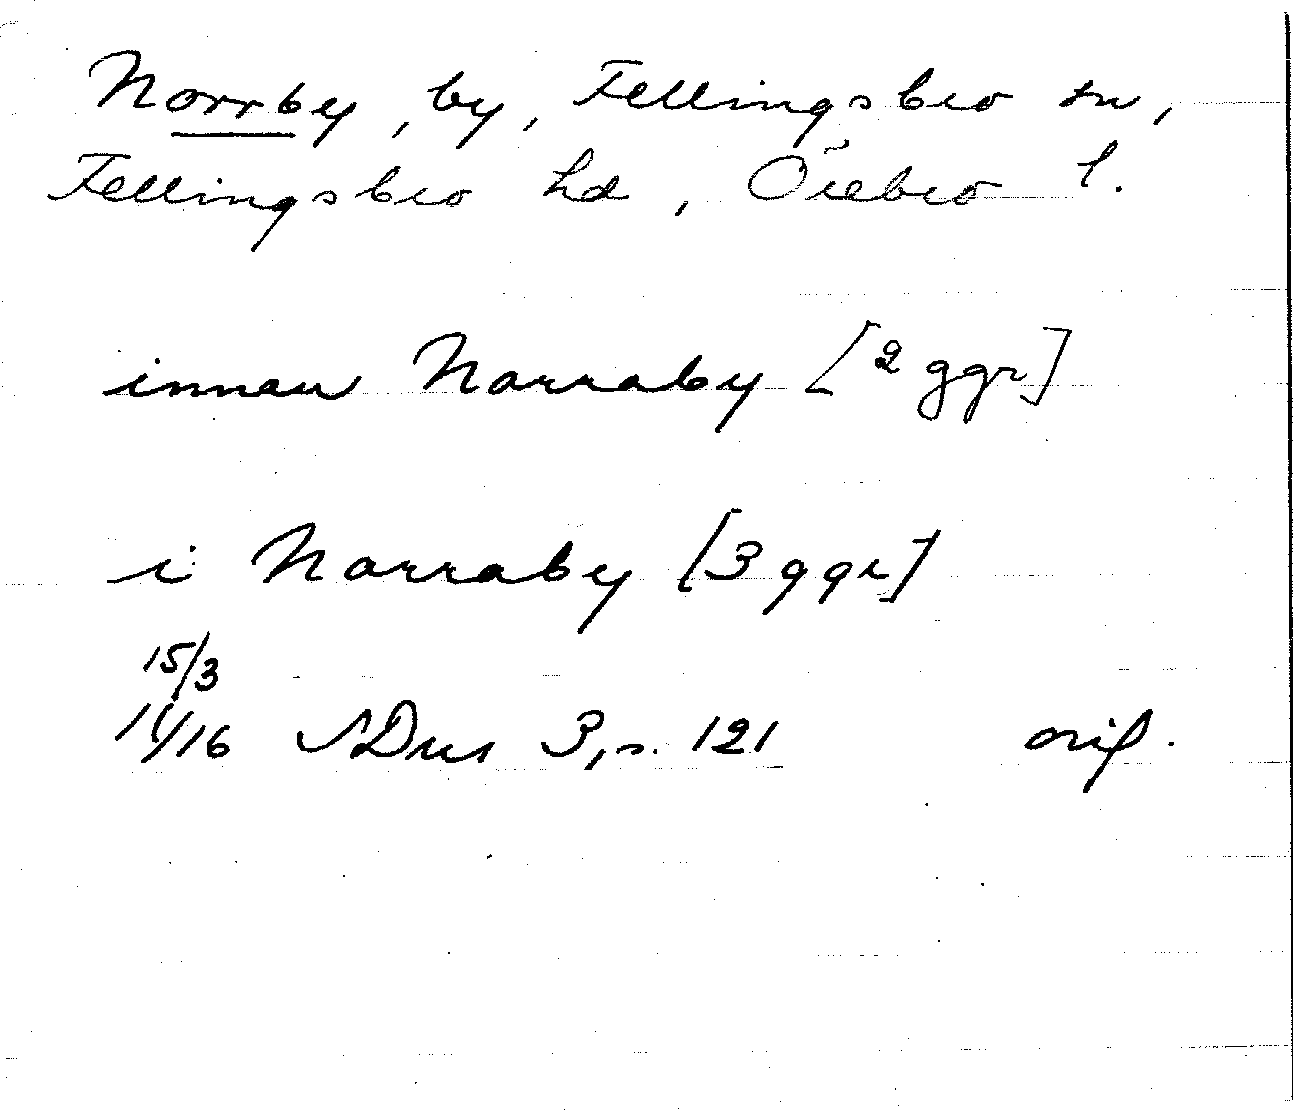 Norrby, by, Fellingsbro sn,
Fellingsbro hd, Örebro l.
innan Narraby [2 ggr]
i Narraby [3 ggr]
15/3
1416 SDns 3, s. 121 orig.